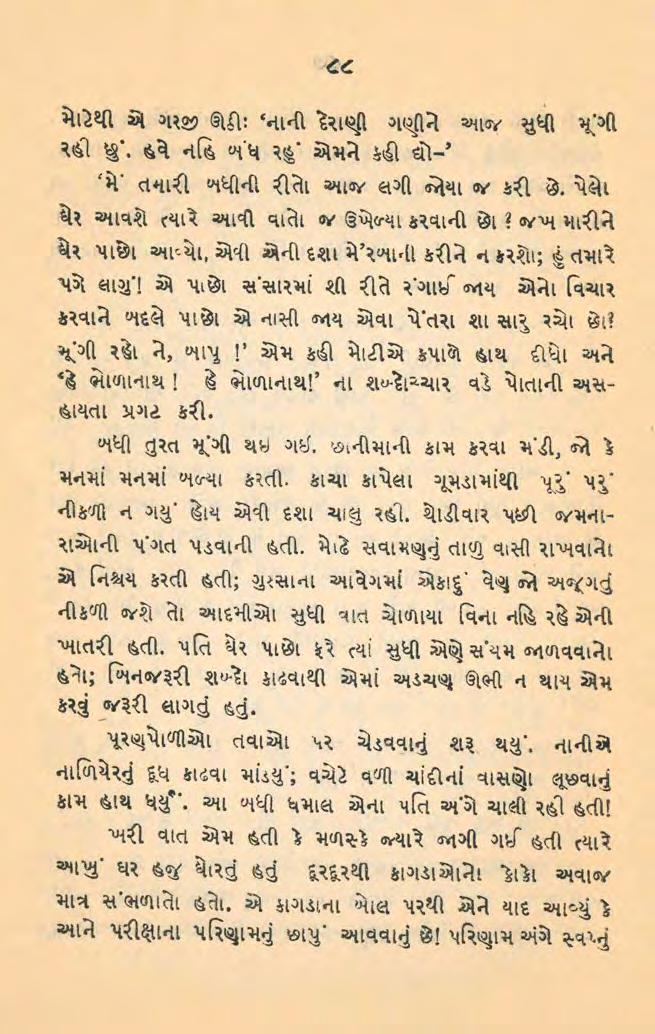 ૮૮
મોટેથી એ ગરજી ઊઠી: ‘નાની દેરાણી ગણીને આજ સુધી મૂંગી
રહી છું. હવે નહિ બંધ રહું એમને કહી દ્યો-’
‘મેં તમારી બધીની રીતો આજ લગી જોયા જ કરી છે. પેલો
ઘેર આવશે ત્યારે આવી વાતો જ ઉખેળ્યા કરવાની છો ? જખ મારીને
ઘેર પાછો આવ્યો, એવી એની દશા મે’રબાની કરીને ન કરશો; હું તમારે
પગે લાગું! એ પાછો સંસારમાં શી રીતે રંગાઈ જાય એનો વિચાર
કરવાને બદલે પાછો એ નાસી જાય એવા પેંતરા શા સારુ રચો છો?
મૂંગી રહો ને, બાપુ !’ એમ કહી મોટીએ કપાળે હાથ દીધો અને
‘હે ભોળાનાથ ! હે ભોળાનાથ!’ ના શબ્દોચ્ચાર વડે પોતાની અસ-
હાયતા પ્રગટ કરી.
બધી તુરત મૂંગી થઇ ગઇ. છાનીમાની કામ કરવા મંડી, જો કે
મનમાં મનમાં બળ્યા કરતી. કાચા કાપેલા ગૂમડામાંથી પૂરું પરું
નીકળી ન ગયું હોય એવી દશા ચાલુ રહી. થોડીવાર પછી જમના-
રાઓની પંગત પડવાની હતી. મોઢે સવામણનું તાળુ વાસી રાખવાનો
એ નિશ્ચય કરતી હતી; ગુસ્સાના આવેગમાં એકાદું વેણ જો અજૂગતું
નીકળી જશે તો આદમીઓ સુધી વાત ચોળાયા વિના નહિ રહે એની
ખાતરી હતી. પતિ ઘેર પાછો ફરે ત્યાં સુધી એણે સંયમ જાળવવાનો
હતો; બિનજરૂરી શબ્દો કાઢવાથી એમાં અડચણ ઊભી ન થાય એમ
કરવું જરૂરી લાગતું હતું.
પૂરણપોળીઓ તવાઓ પર ચેડવવાનું શરૂ થયું. નાનીએ
નાળિયેરનું દૂધ કાઢવા માંડયું; વચેટે વળી ચાંદીનાં વાસણો લૂછવાનું
કામ હાથ ધર્યું. આ બધી ધમાલ એના પતિ અંગે ચાલી રહી હતી!
ખરી વાત એમ હતી કે મળસ્કે જ્યારે જાગી ગઈ હતી ત્યારે
આખું ઘર હજુ ઘોરતું હતું દૂરદૂરથી કાગડાઓનો કોકો અવાજ
માત્ર સંભળાતો હતો. એ કાગડાના બોલ પરથી એને યાદ આવ્યું કે
આને પરીક્ષાના પરિણામનું છાપું આવવાનું છે! પરિણામ અંગે સ્વપ્નું